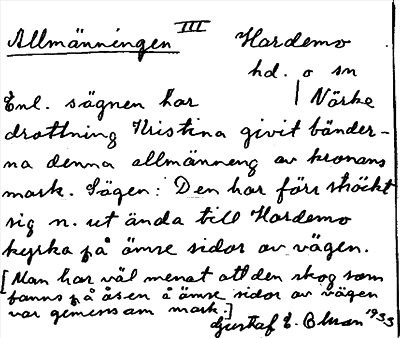 III
Allmänningen Hardemo
hd. o sn
Enl. sägnen har Närke
drottning Kristina givit bönder-
na denna allmänneng av kronans
mark. Sägen: Den har förr sträckt
sig n. ut ända till Hardemo
kyrka på ömse sidor av vägen.
[Man har väl menat att den skog som
fanns på åsen å ömse sidor av vägen
var gemensam mark.]
Gustaf E. Olsson 1933